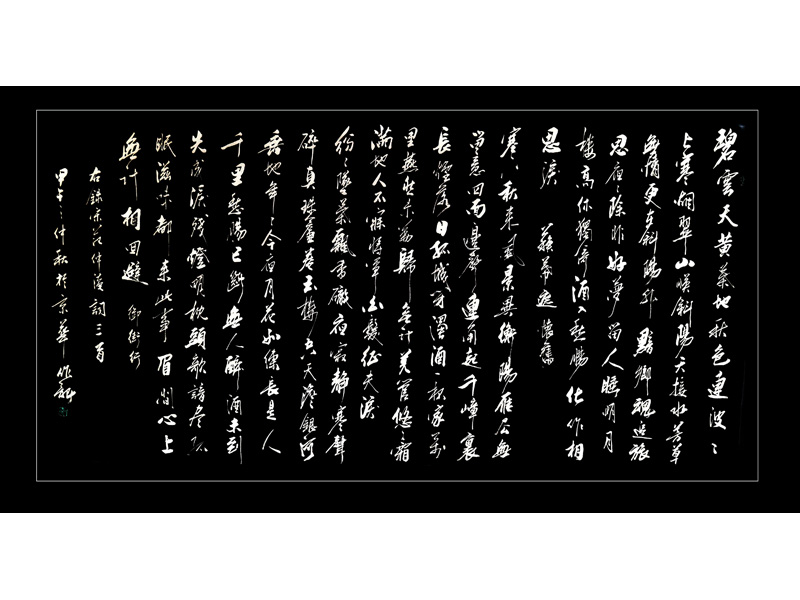 碧雲天黄葉地秋色連波〻
上寒烟翠山暎斜陽天接水芳草
無情更在斜陽外 黯鄉魂追旅
思夜〻除非好夢留人睡明月
樓高休獨倚酒入愁腸化作相
思淚 蘇幕遮 懷舊
塞下秋来風景異衡陽雁去無
留意四面邊聲連角起千嶂裏
長煙落日孤城閉濁酒一杯家萬
里燕然未勒歸無計羌管悠〻霜
滿地人不寐將軍白髮征夫淚
紛〻墜葉飄香砌夜寂靜寒聲
碎真珠簾卷玉樓空天淡銀河
垂地年〻今夜月花如練長是人
千里愁腸已斷無人醉酒未到
先成淚殘燈明枕頭欹諳盡孤
眠滋味都来此事眉間心上
無計相回避 御街行
右錄宋范仲淹詞三首
甲午之仲秋於京華